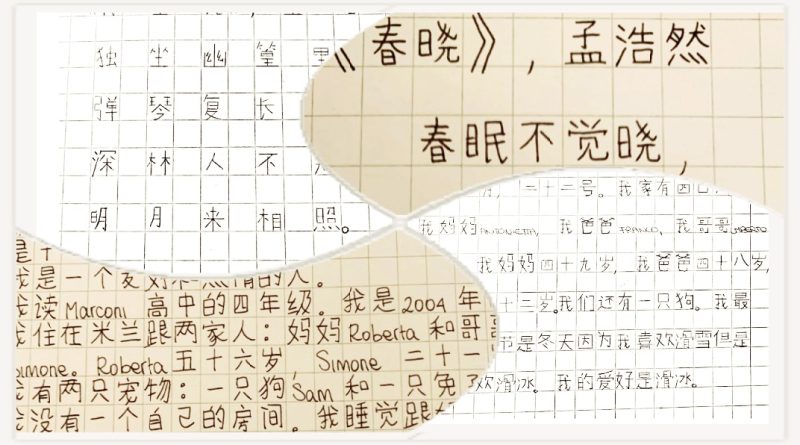 独坐幽篁里
弹琴复长
深林人不
明月来相照。
《春晓》，孟浩然
春眠不觉晓，
二十二号。我家有四口
我妈妈 ANTONIETTA, 我爸爸 FRANCO, 我哥哥
我妈妈四十九岁，我爸爸四十八岁，
十三岁。我们还有一只狗。我最
节是冬天因为我喜欢滑雪但是
欢滑冰。我的爱好是滑冰。
是一个友好和热情的人。
我读 Marconi 高中的四年级。我是 2004 年
我住在米兰跟两家人：妈妈 Roberta 和哥哥
Simone。Roberta 五十六岁，Simone 二十一
我有两只宠物：一只狗 Sam 和一只兔
我没有一个自己的房间。我睡觉跟